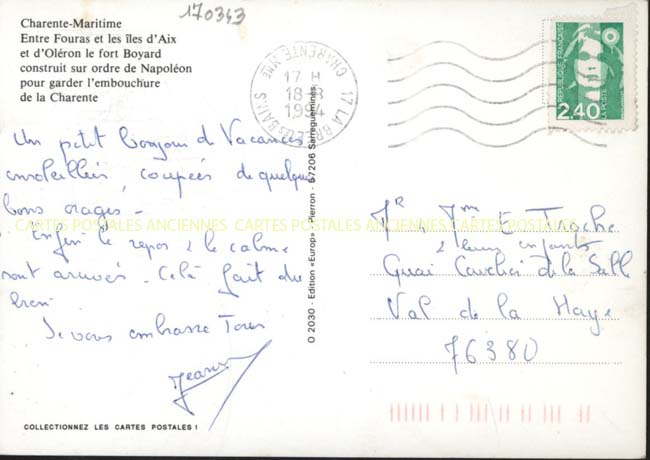 170343
Charente-Maritime
Entre Fouras et les îles d'Aix
et d'Oléron le fort Boyard
construit sur ordre de Napoléon
pour garder l'embouchure
de la Charente
17 LA BREE LES BAINS
CHARENTE MME
17 H
18-8
1994
REPUBLIQUE FRANÇAISE
LA POSTE
2,40
Un petit bonjour de Vacances
ensoleillées, coupées de quelques
bons orages -
Enfin le repos & le calme
sont arrivés. Celà fait du
bien.
Je vous embrasse Tous
CARTES POSTALES ANCIENNES CARTES POSTALES ANCIENNES CARTES POSTALES ANCIENNES
O 2030 - Edition «Europ» Pierron - 57206 Sarreguemines
Mr Mme E. Troche
& leurs enfants
Quai Cavelier de la Salle
Val de la Haye
76380
COLLECTIONNEZ LES CARTES POSTALES !